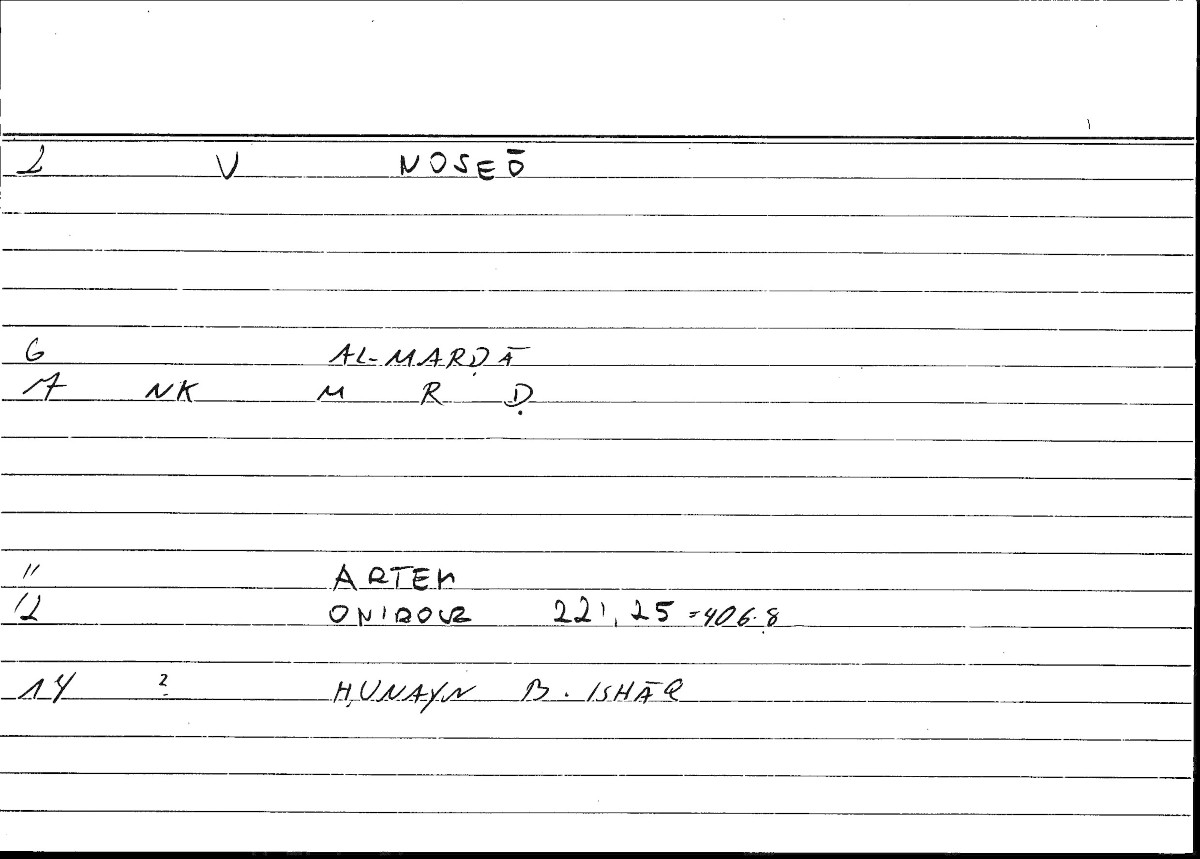 2 V NOSEŌ
6 AL-MARḌĀ
7 NK M R Ḍ
11 ARTEM
12 ONIROCR 221,25 =406.8
14 2 ḤUNAYN B. ISHĀQ